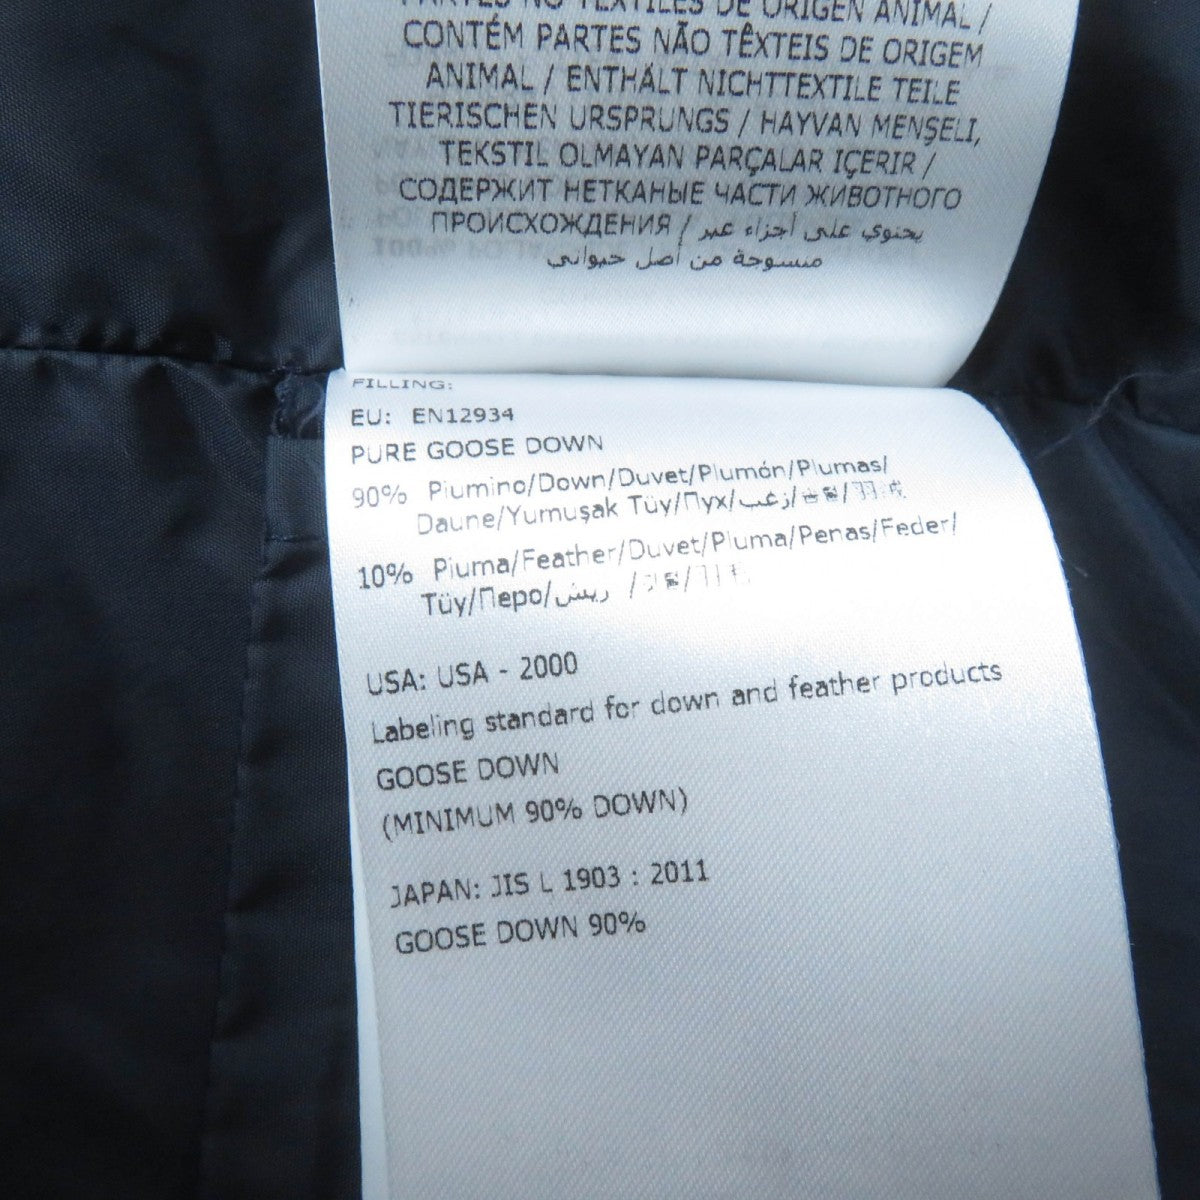 PARTES NO TEXTILES DE ORIGEN ANIMAL /
CONTÉM PARTES NÃO TÊXTEIS DE ORIGEM
ANIMAL / ENTHÄLT NICHTTEXTILE TEILE
TIERISCHEN URSPRUNGS / HAYVAN MENŞELI,
TEKSTIL OLMAYAN PARÇALAR IÇERIR /
СОДЕРЖИТ НЕТКАНЫЕ ЧАСТИ ЖИВОТНОГО
ПРОИСХОЖДЕНИЯ / يحتوي على أجزاء غير
منسوجة من أصل حيواني
FILLING:
EU: EN12934
PURE GOOSE DOWN
90% Piumino/Down/Duvet/Plumón/Plumas/
Daune/Yumuşak Tüy/Пух/زغب/
10% Piuma/Feather/Duvet/Pluma/Penas/Feder/
Tüy/Перо/ريش /
USA: USA - 2000
Labeling standard for down and feather products
GOOSE DOWN
(MINIMUM 90% DOWN)
JAPAN: JIS L 1903 : 2011
GOOSE DOWN 90%